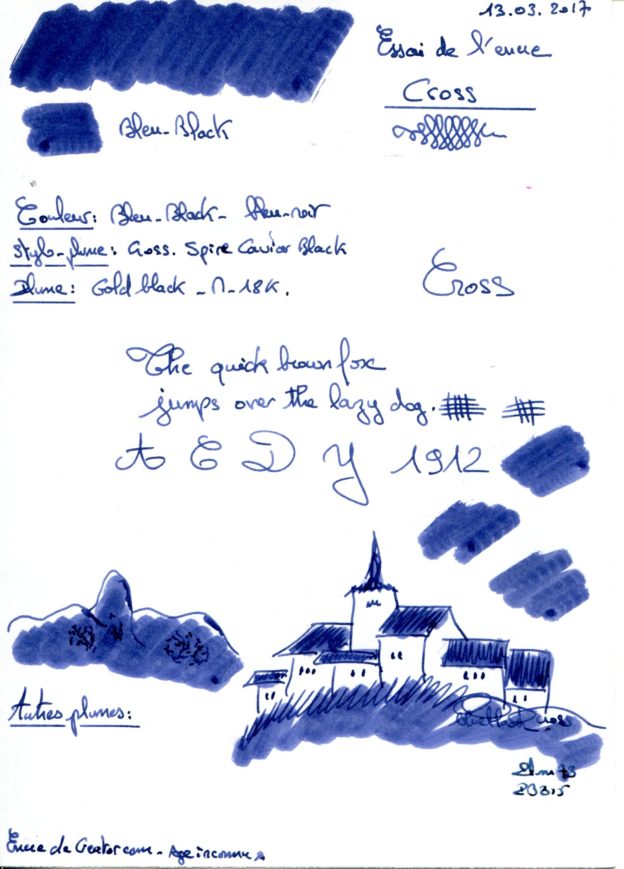 13.03.2017
Essai de l'encre
Cross
Bleu-Black
Couleur: Bleu-Black- bleu-noir
Stylo-plume: Cross. Spire Caviar Black
Plume: Gold black - M-18K.
Cross
The quick brown fox
jumps over the lazy dog.
A E D Y 1912
Autres plumes:
Encre de Creatorcom - Age inconnu